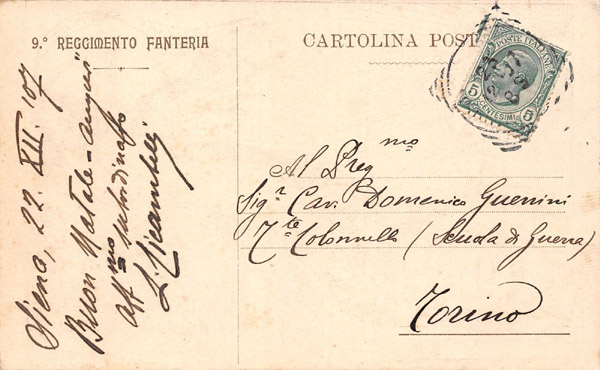 9.º REGGIMENTO FANTERIA
CARTOLINA POST
POSTE ITALIANE
5 CENTESIMI 5
Siena, 22. XII. 107
Buon Natale - auguri
aff.mo subordinato
Al Preg.mo
Sig.r Cav. Domenico Guerrini
T.te Colonnello (Scuola di Guerra)
Torino